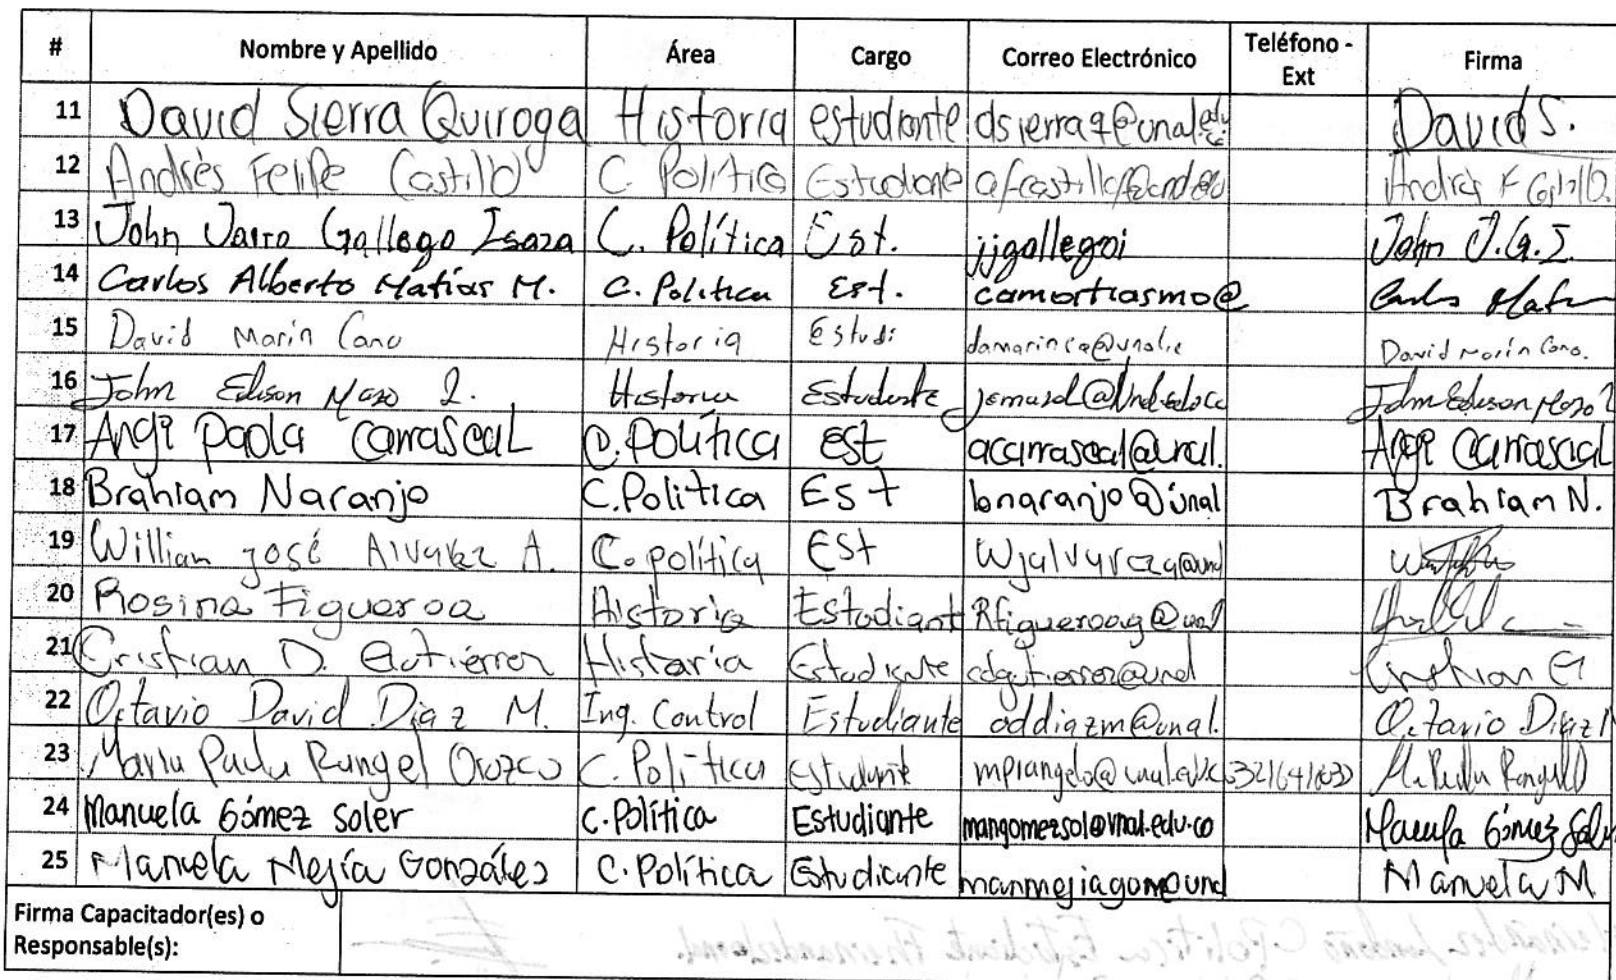 # Nombre y Apellido Área Cargo Correo Electrónico Teléfono - Ext Firma
11 David Sierra Quiroga Historia estudiante dsierraq@unal.edu David S.
12 Andrés Felipe Castillo C. Política Estudiante Andrés F Castillo.
13 John Jairo Gallego Isaza C. Política Est. jjgallegoi John J.G.I.
14 Carlos Alberto Matías M. C. Politica Est. camatiasmo@ Carlos
15 David Marín Cano Historia Estudi damarinca@unal.e David Marín Cano.
16 John Edison L. Historia Estudiante John Edison
17 Angi Paola Carrascal C. Política Est acarrascal@unal. Angi Carrascal
18 Brahiam Naranjo C. Politica Est bnaranjo@unal Brahiam N.
19 Willian José Alvarez A. C. política Est wjalvareza@una
20 Rosina Figueroa Historia Estudiante Rfigueroag@unal
21 Cristian D. Gutiérrez Historia Estudiante cdgutierrez@unal Cristian G
22 Octavio David Díaz M. Ing. Control Estudiante oddiazm@unal. Octavio Díaz M
23 Maria Paula Rangel Orozco C. Política Estudiante mprangelo@unal.edu.co
24 Manuela Gómez Soler C. Política Estudiante mangomezsol@unal.edu.co Manuela Gómez Soler
25 Manuela Mejía González C. Política Estudiante manmejiagon@una Manuela M
Firma Capacitador(es) o
Responsable(s):